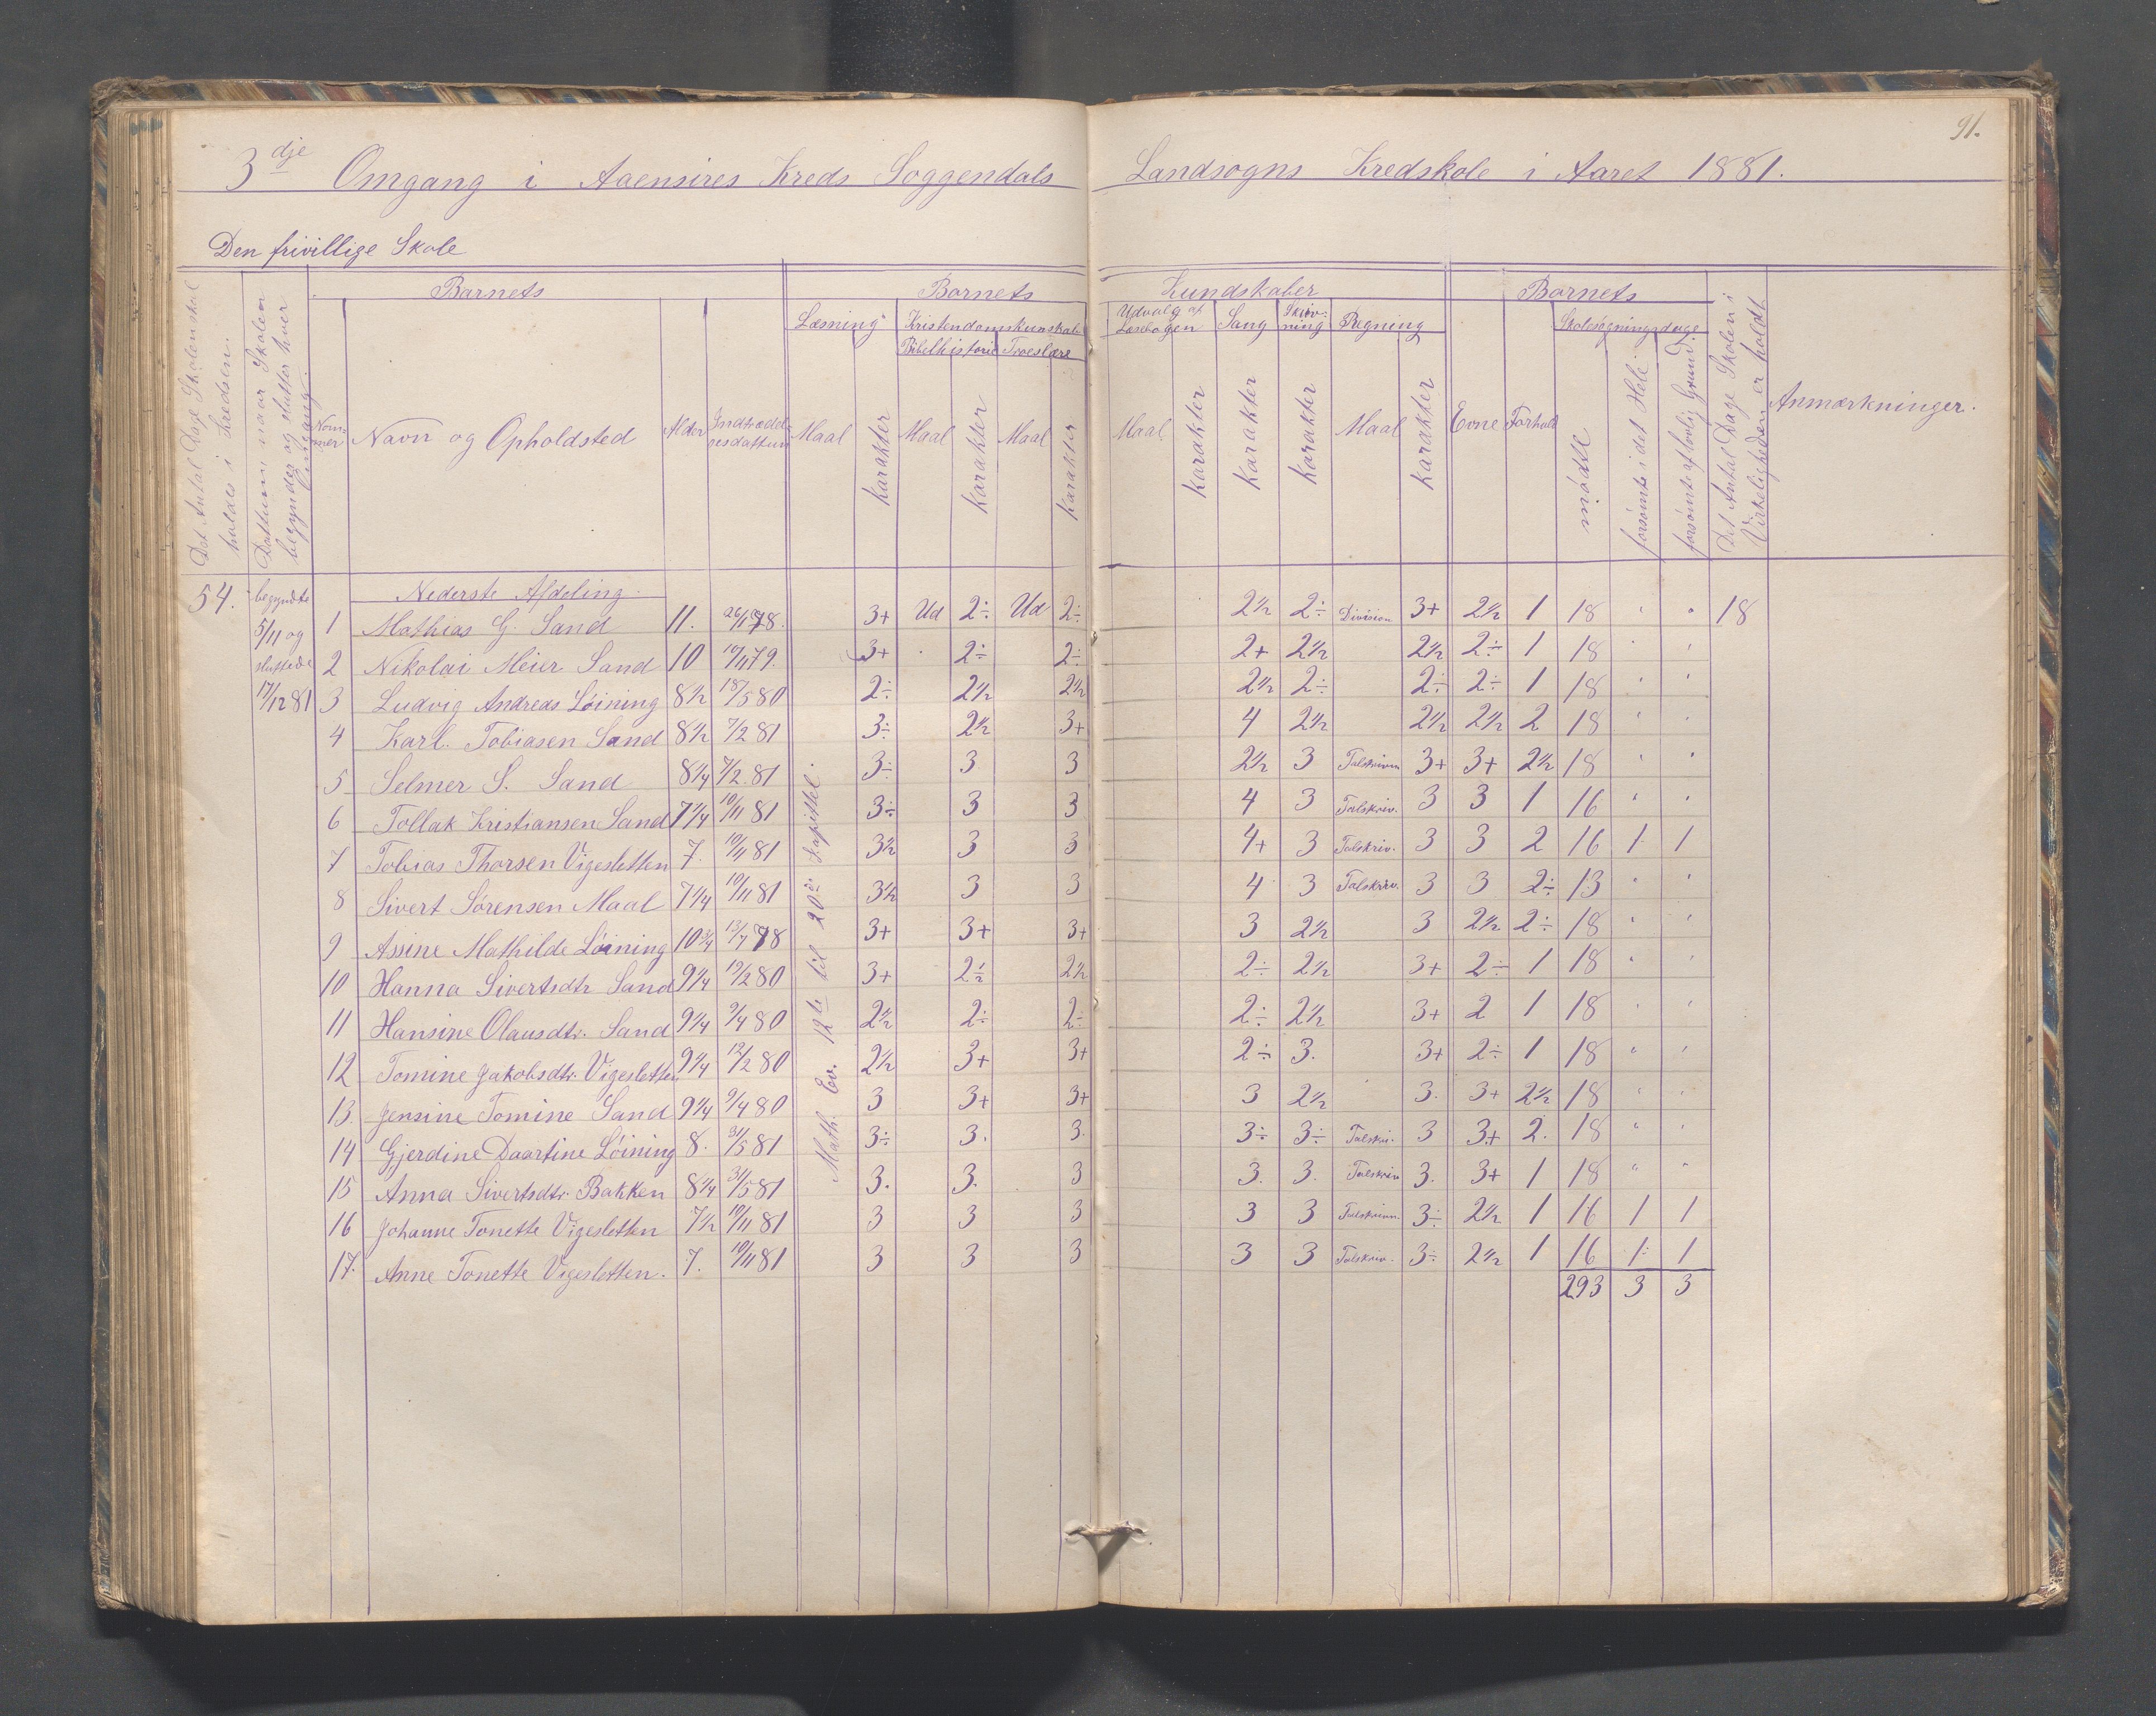 91.
3dje Omgang i Aaensires Kreds Soggendals Landsogns Kredskole i Aaret 1881.
Den frivillige Skole
Det Antal Dage Skolen skal holdes i Kredsen.
Dattum naar Skolen begynder og slutter hver Omgang.
Barnets
Nommer
Navn og Opholdsted
Alder
Indtrædelsesdattum
Barnets Kundskaber
Læsning
Kristendomskunskab
Bibelhistorie Troeslære
Maal karakter Maal karakter Maal karakter
Udvalg af Læsebogen
Sang
Skrivning
Regning
Maal karakter karakter karakter Maal karakter
Barnets
Evne Forhold
Skolesøgningsdage
mødte
forsømte i det Hele
forsømte af lovlig Grund.
Det Antal Dage Skolen i Virkeligheden er holdt
Anmærkninger.
54. begyndte 5/11 og sluttede 17/12 81
Nederste Afdeling.
Math. Ev. 12te til 20de Kapittel.
1 Mathias G. Sand 11. 26/1 78. 3+ Ud 2÷ Ud 2÷ 2½ 2÷ Division 3+ 2½ 1 18 " " 18
2 Nikolai Meier Sand 10 10/11 79. 3+ 2÷ 2÷ 2+ 2½ 2½ 2÷ 1 18 " "
3 Ludvig Andreas Løining 8½ 18/5 80 2÷ 2½ 2½ 2½ 2÷ 2÷ 2÷ 1 18 " "
4 Karl. Tobiasen Sand 8½ 7/2 81 3÷ 2½ 3+ 4 2½ 2½ 2½ 2 18 " "
5 Selmer S. Sand 8¼ 7/2 81 3÷ 3 3 2½ 3 Talskrivn 3+ 3+ 2½ 18 " "
6 Tollak Kristiansen Sand 7¼ 10/11 81 3÷ 3 3 4 3 Talskriv. 3 3 1 16 " "
7 Tobias Thorsen Vigesletten 7. 10/11 81 3½ 3 3 4+ 3 Talskriv. 3 3 2 16 1 1
8 Sivert Sørensen Maal 7¼ 10/11 81 3½ 3 3 4 3 Talskriv. 3 3 2÷ 13 " "
9 Assine Mathilde Løining 10¾ 13/7 78 3+ 3+ 3+ 3 2½ 3 2½ 2÷ 18 " "
10 Hanna Sivertsdtr Sand 9¼ 19/2 80 3+ 2½ 2½ 2÷ 2½ 3+ 2÷ 1 18 " "
11 Hansine Olausdtr. Sand 9¼ 9/4 80 2½ 2÷ 2÷ 2÷ 2½ 3+ 2 1 18 " "
12 Tomine Jakobsdtr. Vigesletten 9¼ 12/2 80 2½ 3+ 3+ 2÷ 3. 3+ 2÷ 1 18 " "
13. Jensine Tomine Sand 9¼ 9/4 80 3 3+ 3+ 3 2½ 3. 3+ 2½ 18 " "
14 Gjerdine Daartine Løining 8. 31/5 81 3÷ 3. 3. 3÷ 3÷ Talskri. 3 3+ 2. 18 " "
15 Anna Sivertsdtr. Bakken 8¼ 31/5 81 3. 3. 3 3. 3. Talskriv 3. 3+ 1 18 " "
16 Johanne Tonette Vigesletten 7½ 10/11 81 3 3 3 3 3 Talskrivn. 3÷ 2½ 1 16 1 1
17. Anne Tonette Vigesletten. 7. 10/11 81 3 3 3 3 3 Talskriv. 3÷ 2½ 1 16 1 1
293 3 3